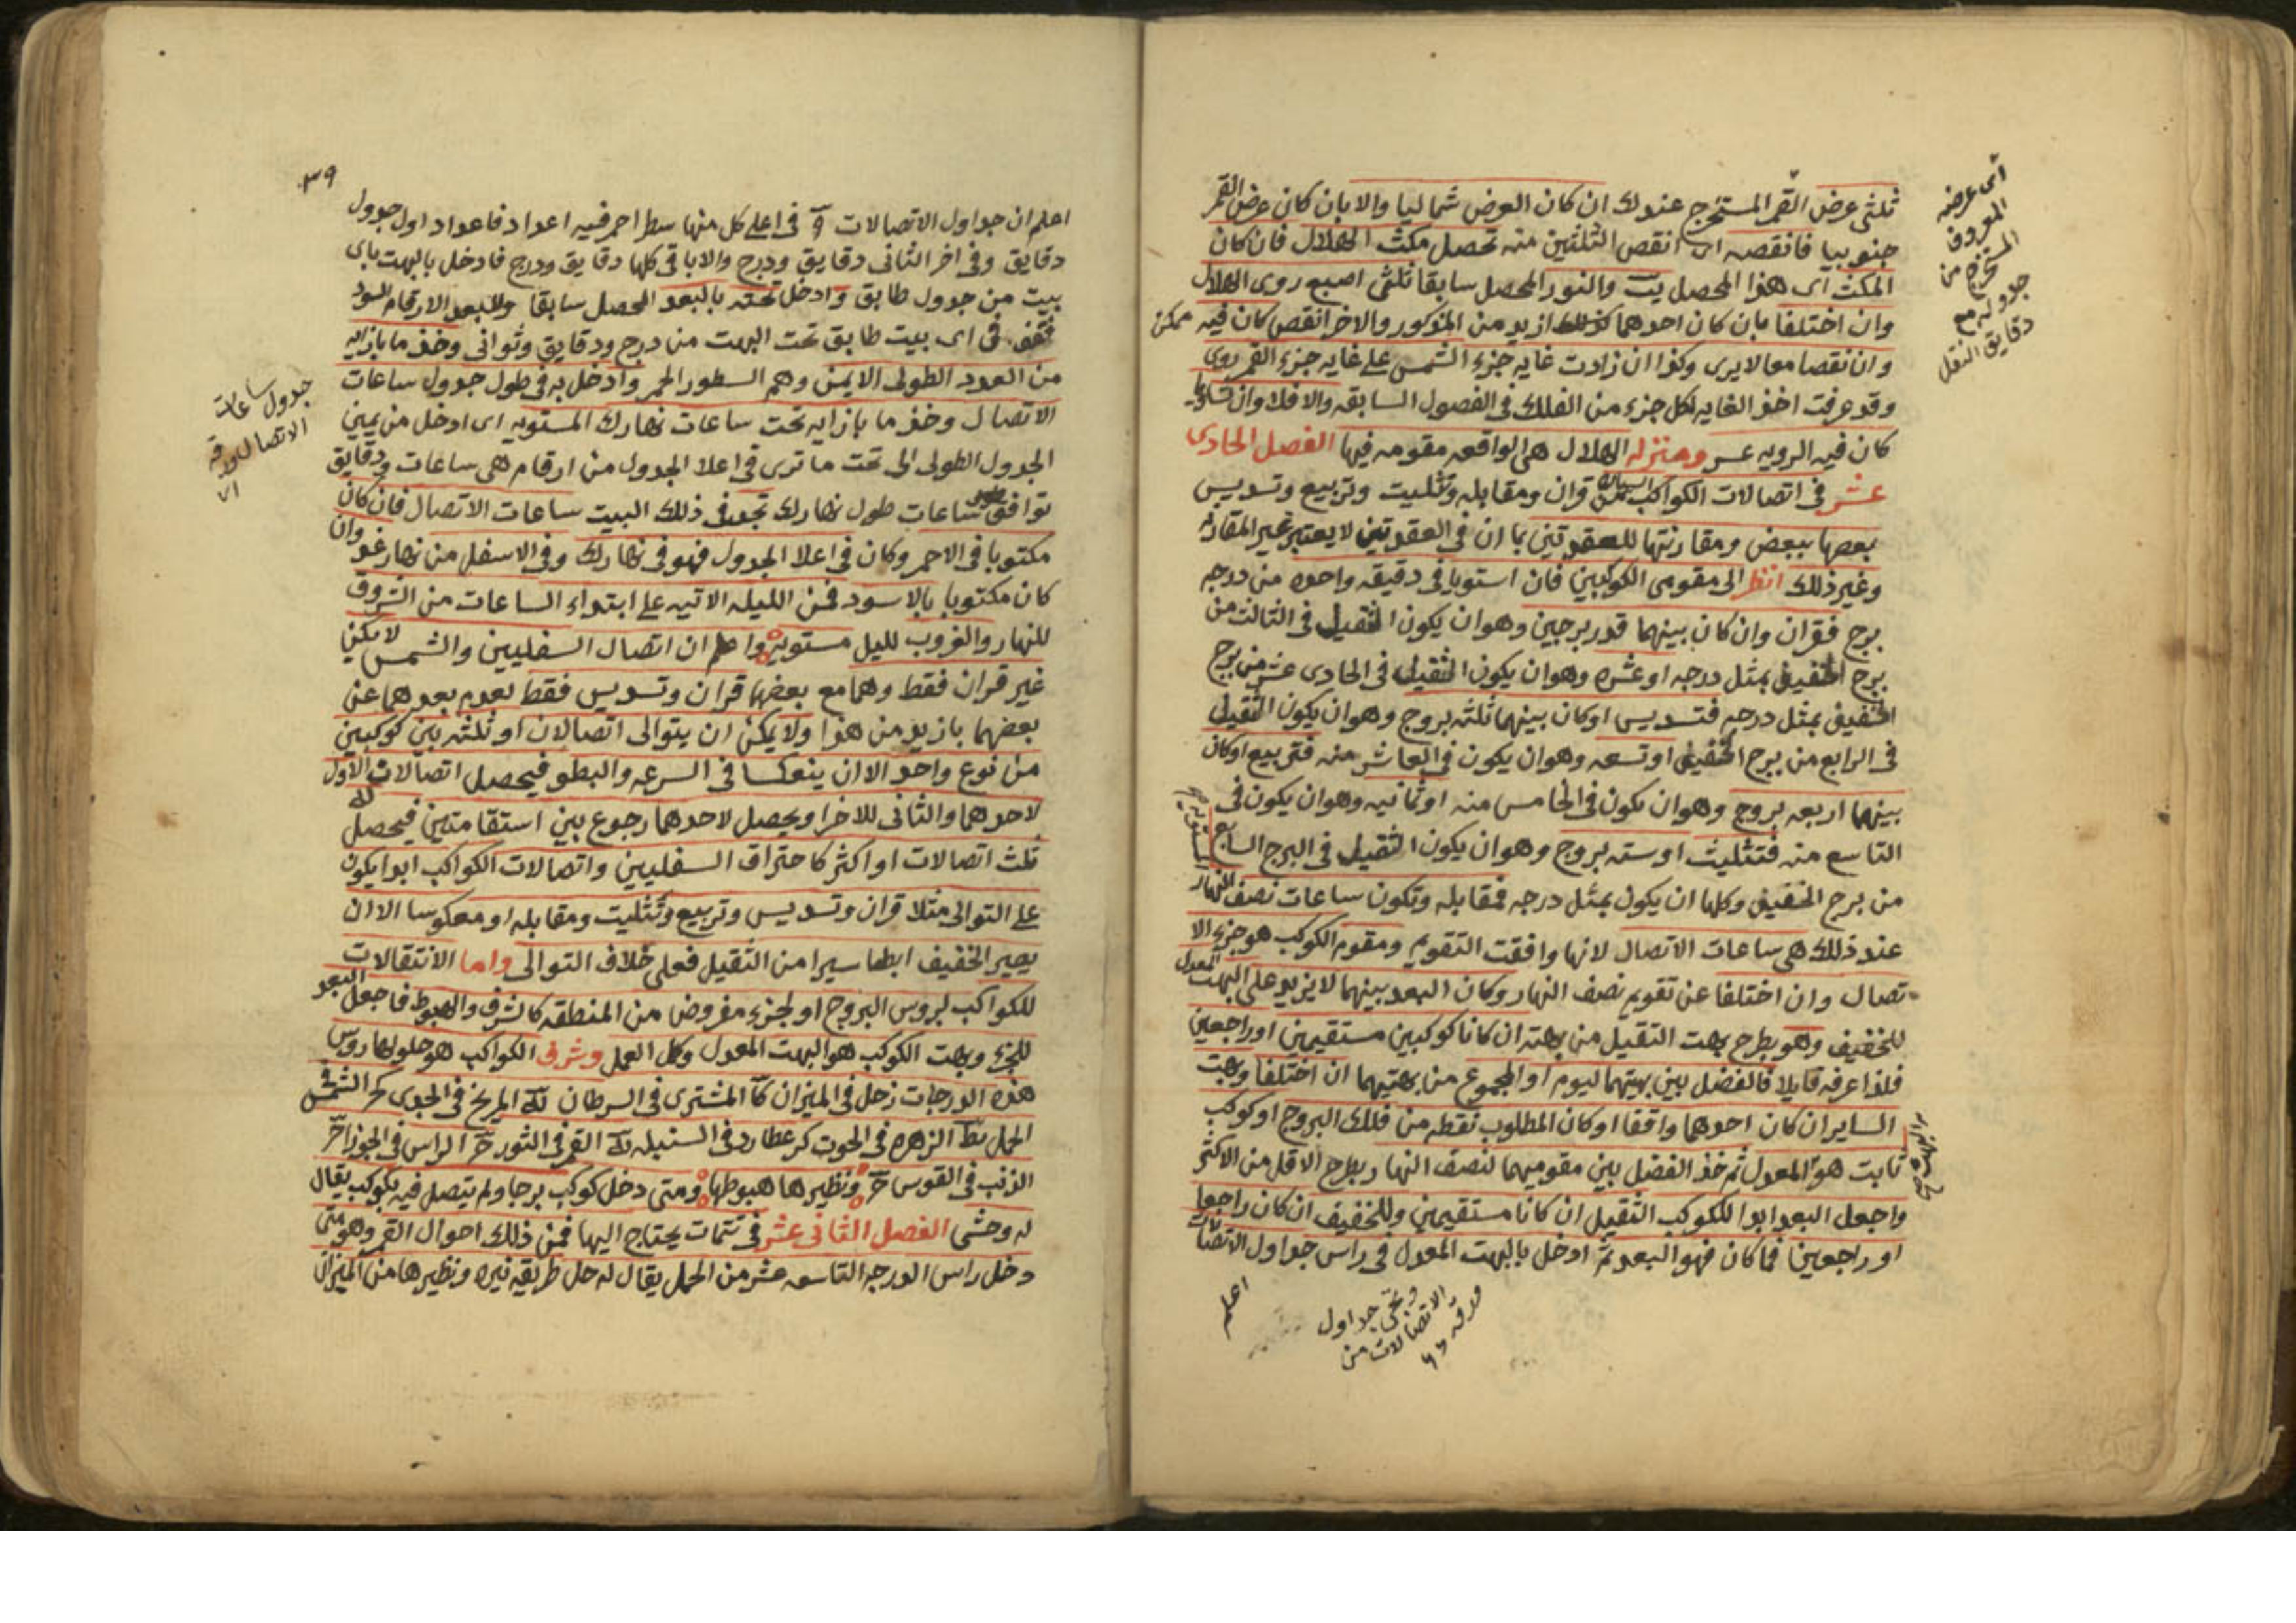 ثلثى عرض القمر المستخرج عندك ان كان العرض شماليا والا بان كان عرض القمر
جنوبيا فانقصه اى انقص الثلثين منه تحصل مكث الهلال فان كان
المكث اى هذا المحصل يت والنور المحصل سابقا ثلثى اصبع روى الهلال
وان اختلفا بان كان احدهما كذلك ازيد من المذكور والاخر انقص كان فيه ممكن
وان نقصا معا لا يرى وكذا ان زادت غايه جزء الشمس على غايه جزء القمر روى
وقد عرفت اخذ الغايه لكل جزء من الفلك فى الفصول السابقه والا فلا وان تساويا
كان فيه الرويه عسر ومنزله الهلال هى الواقعه مقومه فيها الفصل الحادى
عشر فى اتصالات الكواكب السياره من قران ومقابله وتثليث وتربيع وتسديس
بعضها ببعض ومقارنتها للعقدتين بما ان فى العقدتين لا يعتبر غير المقارنه
وغير ذلك انظر الى مقومى الكوكبين فان استويا فى دقيقه واحده من درجه
برج فقران وان كان بينهما قدر برجين وهو ان يكون الثقيل فى الثالث من
برج الخفيف بمثل درجه او عشره وهو ان يكون الثقيل فى الحادى عشر من برج
الخفيف بمثل درجه فتسديس او كان بينهما ثلثه بروج وهو ان يكون الثقيل
فى الرابع من برج الخفيف او تسعه وهو ان يكون فى العاشر منه فتربيع او كان
بينهما اربعه بروج وهو ان يكون فى الخامس منه او ثمانيه وهو ان يكون فى
التاسع منه فتثليث او سته بروج وهو ان يكون الثقيل فى البرج السابع
من برج الخفيف وكلها ان يكون بمثل درجه فمقابله وتكون ساعات نصف النهار
عند ذلك هى ساعات الاتصال لانها وافقت التقويم ومقوم الكوكب هو جزء الا
تصال وان اختلفا عن تقويم نصف النهار وكان البعد بينهما لا يزيد على البهت المعدل
للخفيف وهو بطرح بهت الثقيل من بهته ان كانا كوكبين مستقيمين او راجعين
فلذا عرفه قايلا فالفضل بين بهتيهما ليوم او المجموع من بهتيهما ان اختلفا وبهت
الساير ان كان احدهما واقفا او كان المطلوب نقطه من فلك البروج او كوكب
ثابت هو المعدل ثم خذ الفضل بين مقوميهما لنصف النهار بطرح الاقل من الاكثر
واجعل البعد ابدا للكوكب الثقيل ان كانا مستقيمين وللخفيف ان كان راجعا
او راجعين فما كان فهو البعد ثم ادخل بالبهت المعدل فى راس جداول الاتصالات
اعلم
اى عرضه
المعروف
المستخرج من
جدوله مع
دقايق النقل
جداول
الاتصالات من
ورقه
٣٩
اعلم ان جداول الاتصالات فى اعلى كل منها سطر احمر فيه اعداد فاعداد اول جدول
دقايق وفى اخر الثانى دقايق ودرج والاباقى كلها دقايق ودرج فادخل بالبهت باى
بيت من جدول طابق وادخل تحته بالبعد المحصل سابقا وللبعد الارقام السود
فقف فى اى بيت طابق تحت البهت من درج ودقايق وثوانى وخذ ما بازايه
من العدد الطولى الايمن وهم السطور الحمر وادخل به فى طول جدول ساعات
الاتصال وخذ ما بازايه تحت ساعات نهارك المستويه اى ادخل من يمين
الجدول الطولى الى تحت ما ترى فى اعلا الجدول من ارقام هى ساعات ودقايق
توافق ساعات طول نهارك تجد فى ذلك البيت ساعات الاتصال فان كان
مكتوبا فى الاحمر وكان فى اعلا الجدول فهو فى نهارك وفى الاسفل من نهار غد وان
كان مكتوبا بالاسود فمن الليله الاتيه على ابتداء الساعات من الشروق
للنهار والغروب لليل مستويه واعلم ان اتصال السفليين والشمس لا يكن
غير قران فقط وهما مع بعضها قران وتسديس فقط لعدم بعدهما عن
بعضهما بازيد من هذا ولا يمكن ان يتوالى اتصالان او ثلثه بين كوكبين
من نوع واحد الا ان ينعكسا فى السرعه والبطو فيحصل اتصالات الاول
لاحدهما والثانى للاخر او يحصل لاحدهما رجوع بين استقامتين فيحصل له
ثلث اتصالات او اكثر كاحتراق السفليين واتصالات الكواكب ابدا يكون
على التوالى مثلا قران وتسديس وتربيع وتثليث ومقابله او معكوسا الا ان
يصير الخفيف ابطا سيرا من الثقيل فعلى خلاف التوالى واما الانتقالات
للكواكب لروس البروج او لجزء مفروض من المنطقه كالشرف والهبوط فاجعل البعد
للجزء وبهت الكوكب هو البهت المعدل وكمل العمل وشرف الكواكب هو حلولها روس
هذه الدرجات زحل فى الميزان كا المشترى فى السرطان يه المريخ فى الجدى كح الشمس فى
الحمل يط الزهره فى الحوت كز عطارد فى السنبله يه القمر فى الثور ج الراس فى الجوزا ج
الذنب فى القوس ج ونظيرها هبوطها ومتى دخل كوكب برجا ولم يتصل فيه بكوكب يقال
له وحشى الفصل الثانى عشر فى تتمات يحتاج اليها فمن ذلك احوال القمر وهو متى
دخل راس الدرجه التاسعه عشر من الحمل يقال له حل طريقه نيره ونظيرها من الميزان
جدول ساعات
الاتصال ورقه
٧١